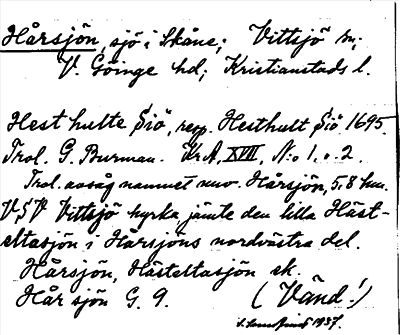 Hårsjön, sjö i Skåne; Vittsjö sn;
V. Göinge hd; Kristianstads l.
Hest hulte Siö, resp. Hesthult Siö 1695.
Trol. G. Burman. Kr.A, XVIII, N:o 1. o. 2.
Trol. avsåg namnet nuv. Hårsjön, 5,8 km.
V,S V Vittsjö kyrka jämte den lilla Häst-
eltasjön i Hårsjöns nordvästra del.
Hårsjön, Hästeltasjön ek.
Hårsjön G. 9.
(Vänd!)
1937.